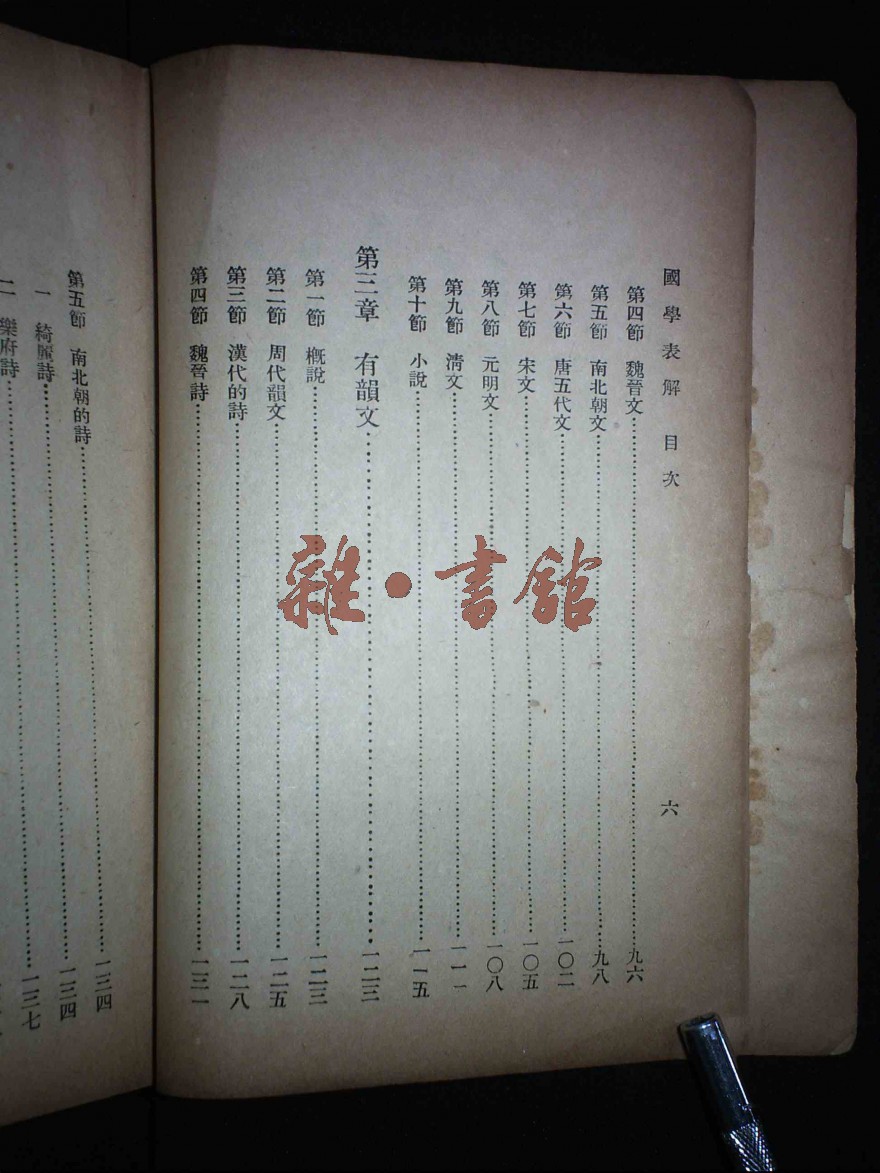 國學表解 目次 六
第四節 魏晉文……九六
第五節 南北朝文……九八
第六節 唐五代文……一〇二
第七節 宋文……一〇五
第八節 元明文……一〇八
第九節 清文……一一一
第十節 小說……一一五
第三章 有韻文……一二三
第一節 概說……一二三
第二節 周代韻文……一二五
第三節 漢代的詩……一二八
第四節 魏晉詩……一三一
第五節 南北朝的詩……一三四
一 綺麗詩……一三四
二 樂府詩……一三七
雜·書館